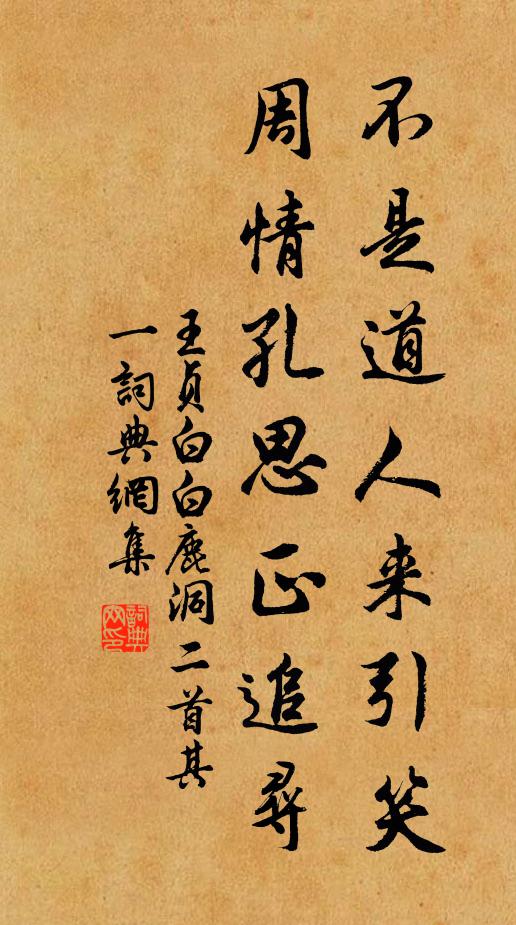 不是道人来引笑
周情孔思正追尋
王貞白白鹿洞二首其
一詞典網集
詞典網印